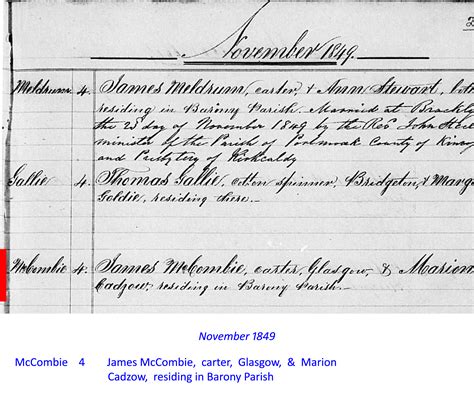 November 1849.
Meldrum 4. James Meldrum, carter, & Ann Stewart, both
residing in Barony Parish. Married at
the 23d day of November 1849 by the Revd John
minister of the Parish of Portmoak County of
and Presbytery of Kirkcaldy
Gallie 4. Thomas Gallie, cotton spinner, Bridgeton, &
Goldie, residing there.
McCombie 4. James McCombie, carter, Glasgow, & Marion
Cadzow, residing in Barony Parish.
November 1849
McCombie 4 James McCombie, carter, Glasgow, & Marion
Cadzow, residing in Barony Parish